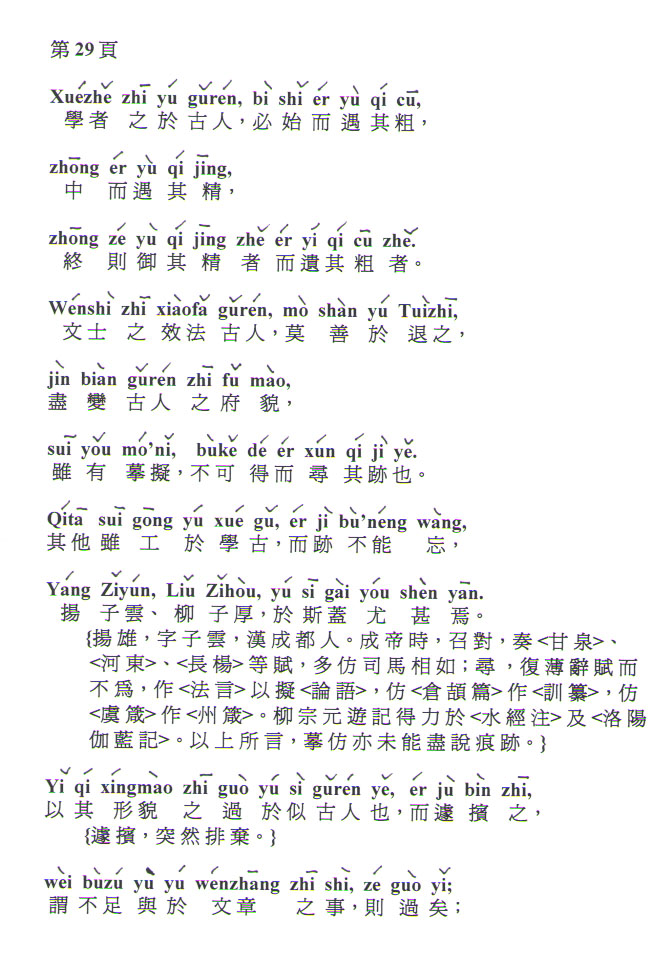 第 29 頁
Xuézhě zhī yú gǔrén, bì shǐ ér yù qí cū,
學者 之於古人，必始而遇其粗，
zhōng ér yù qí jīng,
中 而遇其精，
zhōng zé yù qí jīng zhě ér yí qí cū zhě.
終 則御其精者而遺其粗者。
Wénshì zhī xiàofǎ gǔrén, mò shàn yú Tuìzhī,
文士 之 效法古人，莫 善 於 退之，
jìn biàn gǔrén zhī fǔ mào,
盡 變 古人 之府 貌，
suī yǒu mó’nǐ, bùkě dé ér xún qí jì yě.
雖 有 摹擬，不可 得而 尋 其跡也。
Qítā suī gōng yú xué gǔ, ér jì bù’néng wàng,
其他雖 工 於 學古，而跡 不能 忘，
Yáng Zǐyún, Liǔ Zǐhòu, yú sī gài yóu shèn yān.
揚 子雲、柳 子厚，於斯蓋 尤 甚 焉。
{揚雄，字子雲，漢成都人。成帝時，召對，奏<甘泉>、
<河東>、<長楊>等賦，多仿司馬相如；尋，復薄辭賦而
不為，作<法言>以擬<論語>，仿<倉頡篇>作<訓纂>，仿
<虞箴>作<州箴>。柳宗元遊記得力於<水經注>及<洛陽
伽藍記>。以上所言，摹仿亦未能盡說痕跡。}
Yǐ qí xíngmào zhī guò yú sì gǔrén yě, ér jù bìn zhī,
以其 形貌 之 過 於似 古人也，而遽 擯 之，
{遽擯，突然排棄。}
wèi bùzú yù yú wénzhāng zhī shì, zé guò yǐ;
謂 不足 與於 文章 之事，則 過矣；